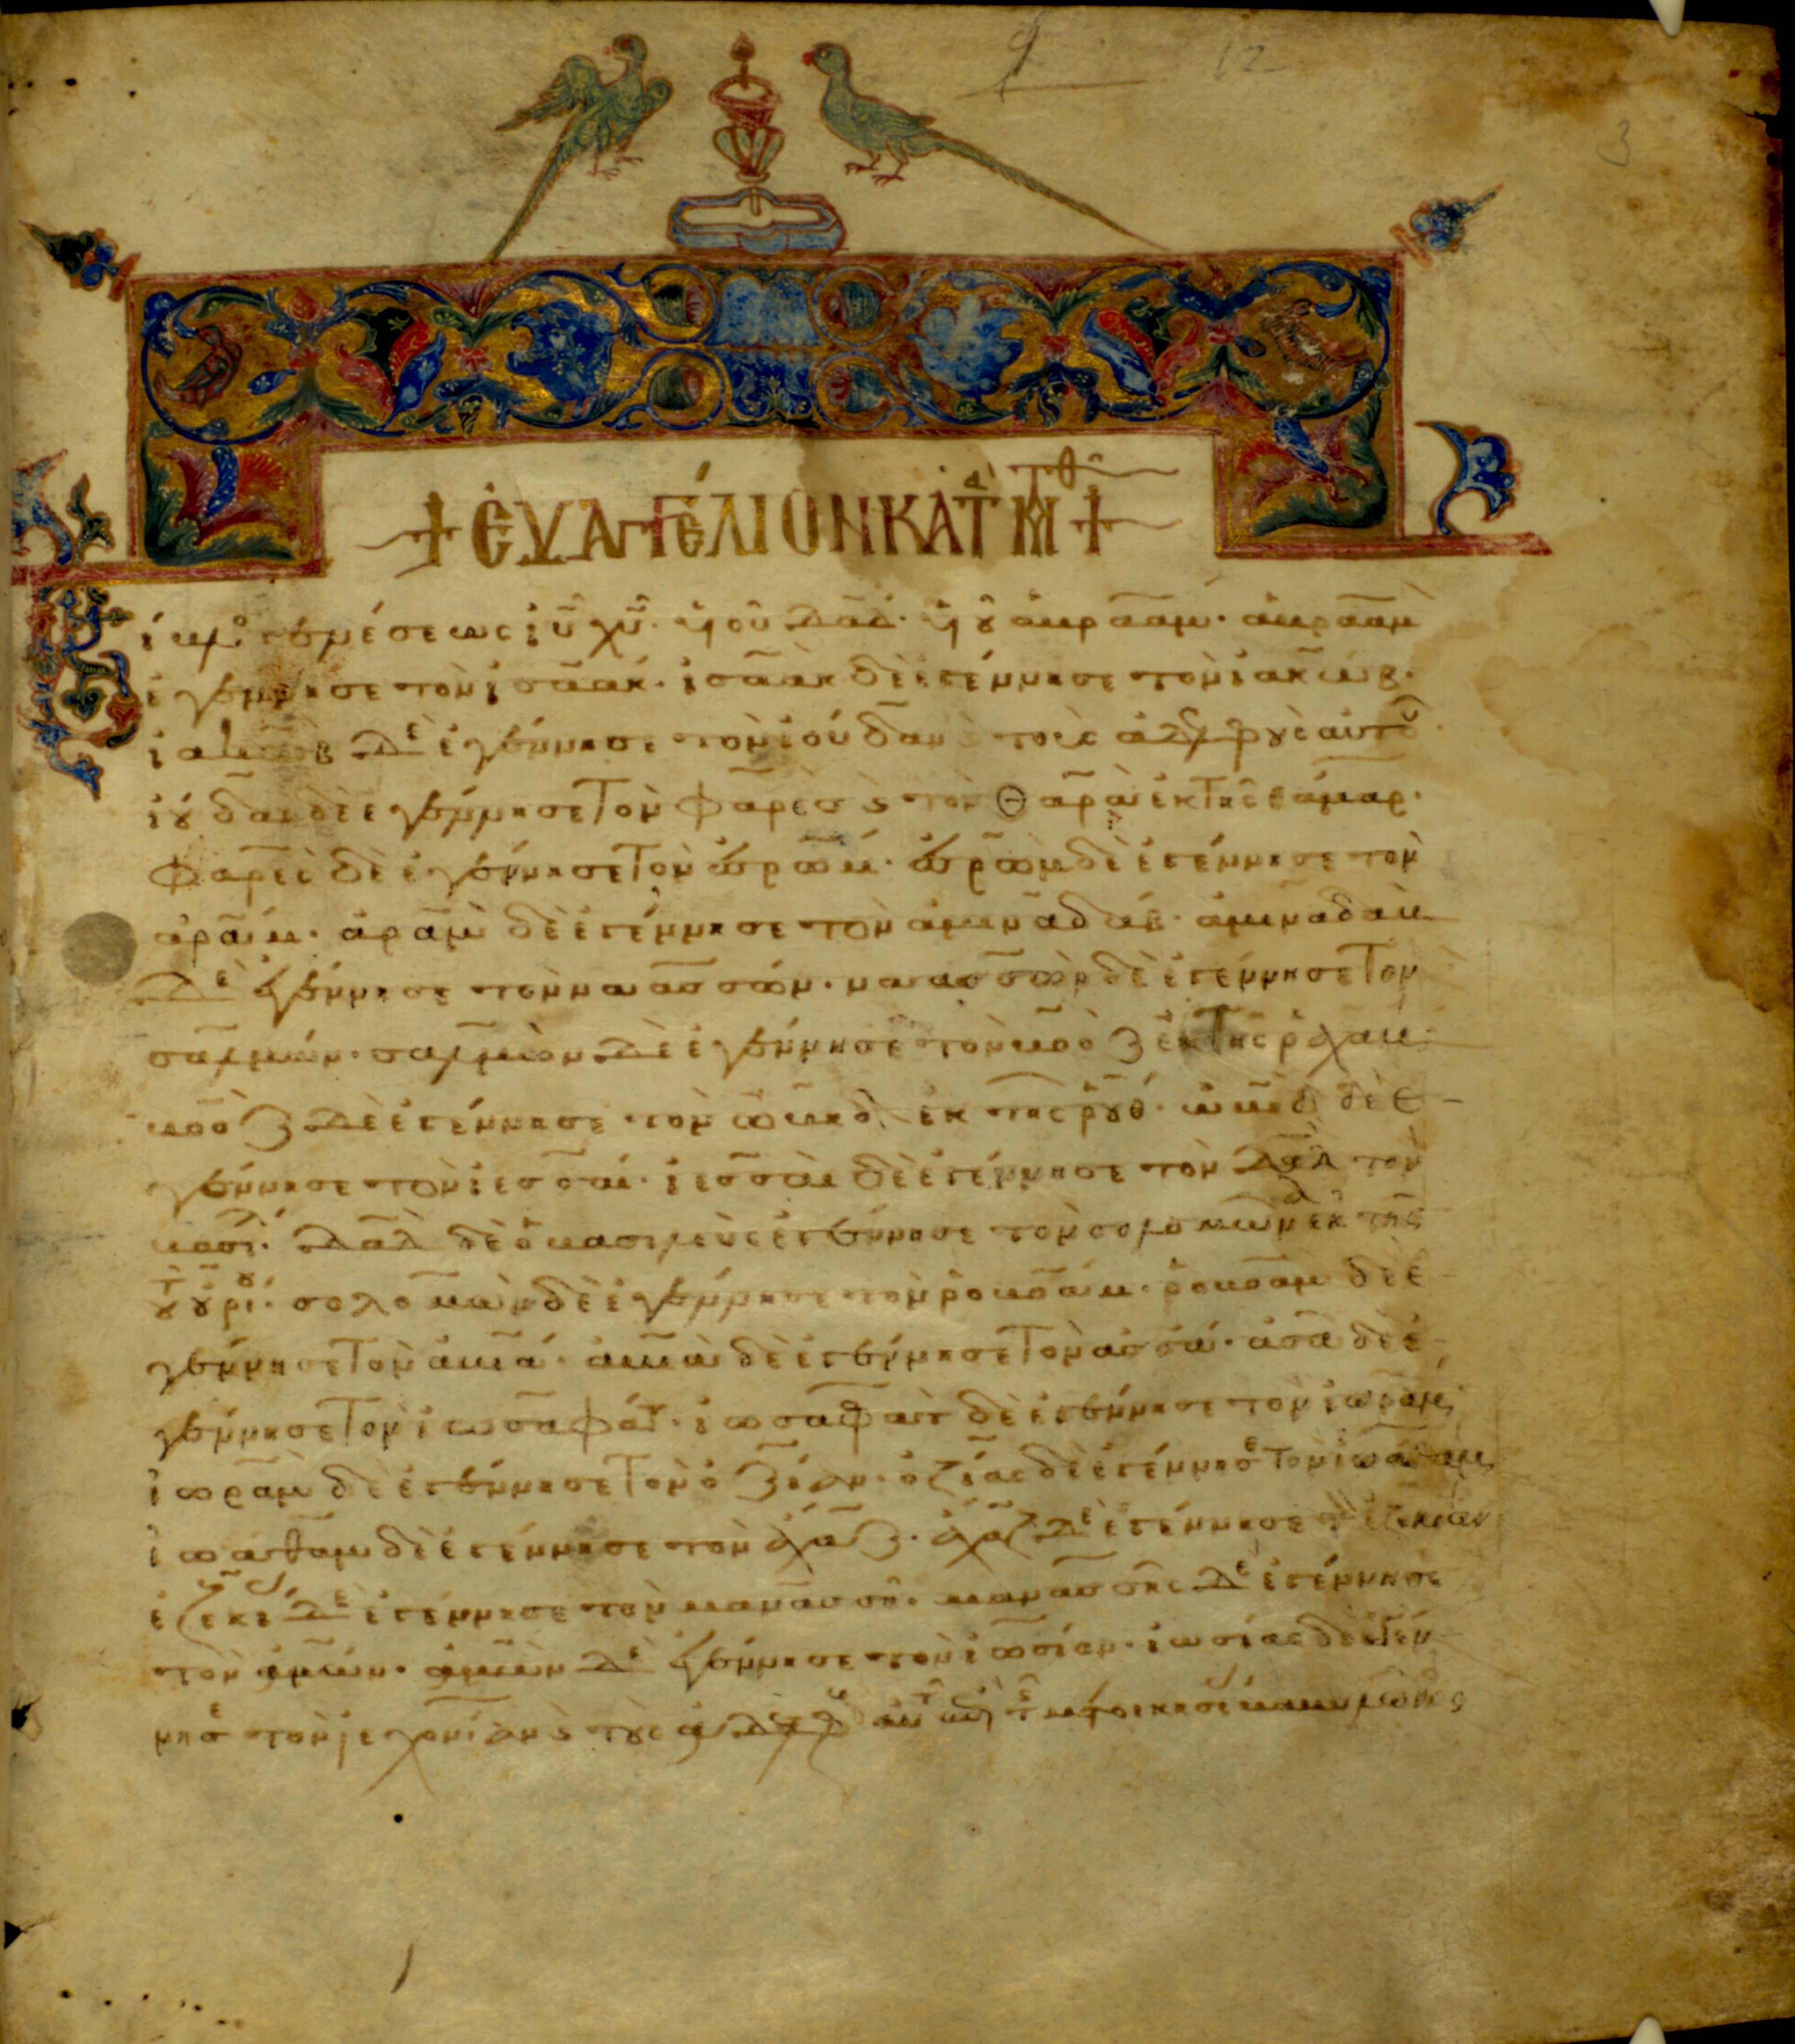 12
3
+ ΕΥΑΓΓΕΛΙΟΝ ΚΑΤ ΜΤΘ +
Βίβλο γενέσεως ἰῦ χῦ. ὑοῦ δαδ. ὑοῦ ἀβραάμ. ἀβραὰμ
ἐγέννησε τὸν ἰσαάκ. ἰσαὰκ δὲ ἐγέννησε τὸν ἰακώβ.
ἰακὼβ δὲ ἐγέννησε τὸν ἰούδαν ϗ τοὺς ἀδελφοὺς αὐτοῦ
ἰούδας δὲ ἐγέννησε τὸν φαρὲς ϗ τὸν ἐκ τῆς θάμαρ.
φαρὲς δὲ ἐγέννησε τὸν ἐσρώμ. ἐσρὼμ δὲ ἐγέννησε τὸν
ἀράμ. ἀρὰμ δὲ ἐγέννησε τὸν ἀμιναδάβ. ἀμιναδὰβ
δὲ ἐγέννησε τὸν ναασσών. ναασσὼν δὲ ἐγέννησε τὸν
σαλμών. σαλμὼν δὲ ἐγέννησε τὸν βοὸζ ἐκ τῆς ῥαχάβ.
βοὸζ δὲ ἐγέννησε τὸν ὠβὴδ ἐκ τῆς ῥούθ. ὠβὴδ δὲ ἐ
γέννησε τὸν ἰεσσαί. ἰεσσαὶ δὲ ἐγέννησε τὸν δαδ τὸν
βασιλ. δαδ δὲ ὁ βασιλεὺς ἐγέννησε τὸν σολομῶνα ἐκ τῆς
τοῦ οὐρί. σολομὼν δὲ ἐγέννησε τὸν ῥοβοάμ. ῥοβοὰμ δὲ ἐ
γέννησε τὸν ἀβιά. ἀβιὰ δὲ ἐγέννησε τὸν ἀσσά. ἀσὰ δὲ ἐ
γέννησε τὸν ἰωσαφάτ. ἰωσαφὰτ δὲ ἐγέννησε τὸν ἰωράμ.
ἰωρὰμ δὲ ἐγέννησε τὸν ὀζίαν. ὀζίας δὲ ἐγέννησε τὸν ἰωάθαμ
ἰωάθαμ δὲ ἐγέννησε τὸν ἄχαζ. ἄχαζ δὲ ἐγέννησε τ ἐζεκίαν
ἐζεκί δὲ ἐγέννησε τὸν μανασσῆ. μανασσῆς δὲ ἐγέννησε
τὸν ἀμών. ἀμὼν δὲ ἐγέννησε τὸν ἰωσίαν. ἰωσίας δὲ ἐγέν
νησε τὸν ἰεχονίαν ϗ τοὺς ἀδελφ αὐ ἐπὶ τ μετοικεσί βαβυλῶνος